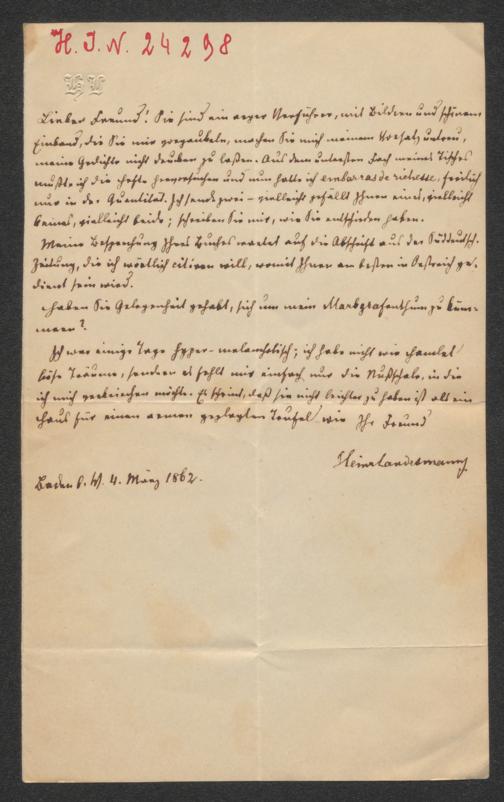 H. I. N. 24298
HL
Lieber Freund! Sie sind ein arger Verführer, mit Bildern und schönem
Einband, die Sie mir vorgaukeln, machen Sie mich meinem Vorsatz untreu,
meine Gedichte nicht drucken zu laßen. Aus dem untersten Fach meines Tisches
mußte ich die Hefte hervorsuchen und nun hatte ich embaras de richesse, freilich
nur in der Quantität. Ich sende zwei – vielleicht gefällt Ihnen eines, vielleicht
keines, vielleicht beide; schreiben Sie mir, wie Sie entschieden haben.
Meine Besprechung Ihres Buches wartet auf die Abschrift aus der Süddeutsch.
Zeitung, die ich wörtlich citiren will, womit Ihnen am besten in Oestreich ge-
dient sein wird.
Haben Sie Gelegenheit gehabt, sich um mein Markgrafenthum zu küm-
mern?
Ich war einige Tage hyper-melancholisch; ich habe nicht wie Hamlet
böse Träume, sondern es fehlt mir einfach nur die Nußschale, in die
ich mich verkriechen möchte. Es scheint, daß sie nicht leichter zu haben ist als ein
Haus für einen armen geplagten Teufel wie Ihr Freund
Heinr Landesmann
Baden b. W. 4. März 1862.